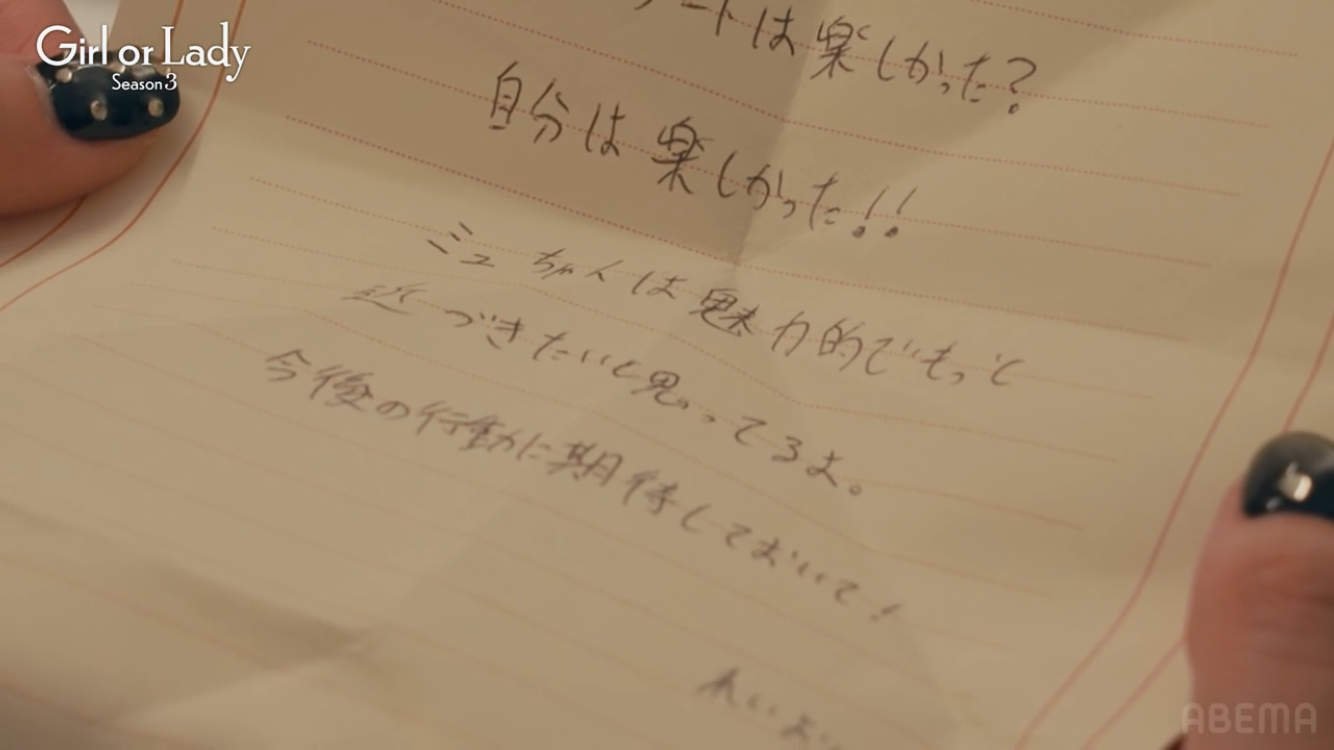 Girl or Lady
Season3
ートは楽しかった?
自分は楽しかった!!
ミュちゃんは魅力的でもっと
近づきたいと思ってるよ。
今後の行動に期待しておいて!
れいよ
ABEMA